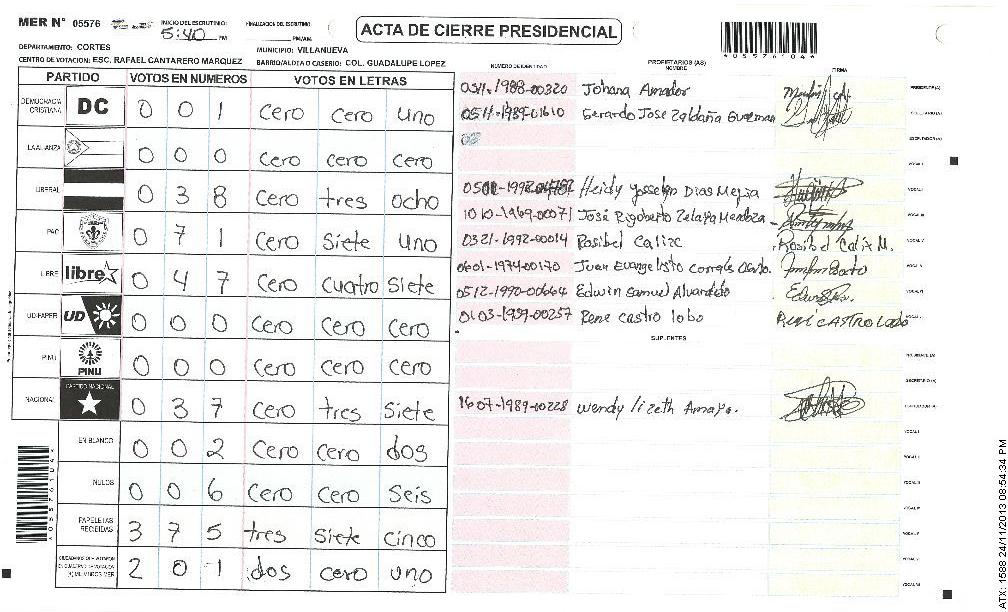 MER N° 05576 INICIO DEL ESCRUTINIO: 5:40 PM FINALIZACION DEL ESCRUTINIO PM/AM
ACTA DE CIERRE PRESIDENCIAL
*05576104*
DEPARTAMENTO: CORTES MUNICIPIO: VILLANUEVA
CENTRO DE VOTACION: ESC. RAFAEL CANTARERO MARQUEZ BARRIO/ALDEA O CASERIO: COL. GUADALUPE LOPEZ
PARTIDO VOTOS EN NUMEROS VOTOS EN LETRAS
DEMOCRACIA CRISTIANA DC 0 0 1 cero cero uno
LA ALIANZA 0 0 0 cero cero cero
LIBERAL 0 3 8 cero tres ocho
PAC 0 7 1 cero siete uno
LIBRE libre 0 4 7 cero cuatro siete
UD-FAPER UD 0 0 0 cero cero cero
PINU PINU 0 0 0 cero cero cero
NACIONAL PARTIDO NACIONAL 0 3 7 cero tres siete
EN BLANCO 0 0 2 cero cero dos
NULOS 0 0 6 cero cero seis
PAPELETAS RECIBIDAS 3 7 5 tres siete cinco
2 0 1 dos cero uno
NUMERO DE IDENTIDAD PROPIETARIOS (AS) NOMBRE FIRMA
0511-1988-00320 Johana Amador PRESIDENTE (A)
0511-1989-01610 Gerardo Jose Zaldaña Guzman SECRETARIO (A)
ESCRUTADOR (A)
VOCAL I
Heidy Josselyn Dias Mejia
1010-1969-00071 José Rigoberto Zelaya Mendoza
0321-1992-00014 Rosibel Calix Rosibel Calix M.
0601-1974-00170 Juan Evangelisto Corrales
0512-1990-00664 Edwin Samuel Alvarado
0103-1959-00257 Rene Castro lobo RENE CASTRO LOBO
SUPLENTES
PRESIDENTE (A)
SECRETARIO (A)
1607-1989-00228 Wendy lizeth Amaya. ESCRUTADOR (A)
VOCAL I
VOCAL II
VOCAL III
VOCAL IV
VOCAL V
*05576104*
ATX: 1588 24/11/2013 08:54:34 PM